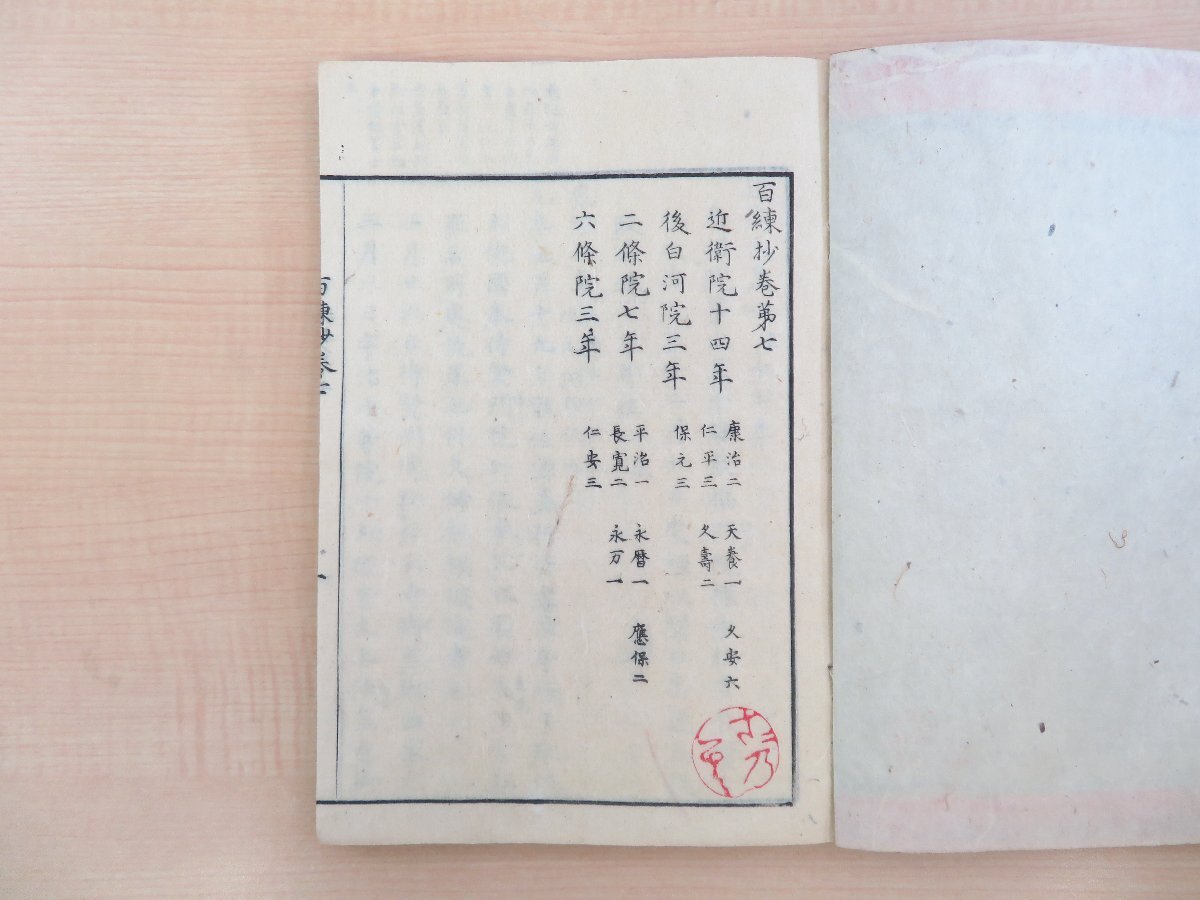 百練抄巻第七
近衛院十四年
康治二　天養一　久安六
仁平三　久壽二
後白河院三年
保元三
二條院七年
平治一　永暦一　應保二
長寛二　永万一
六條院三年
仁安三
百練抄巻七